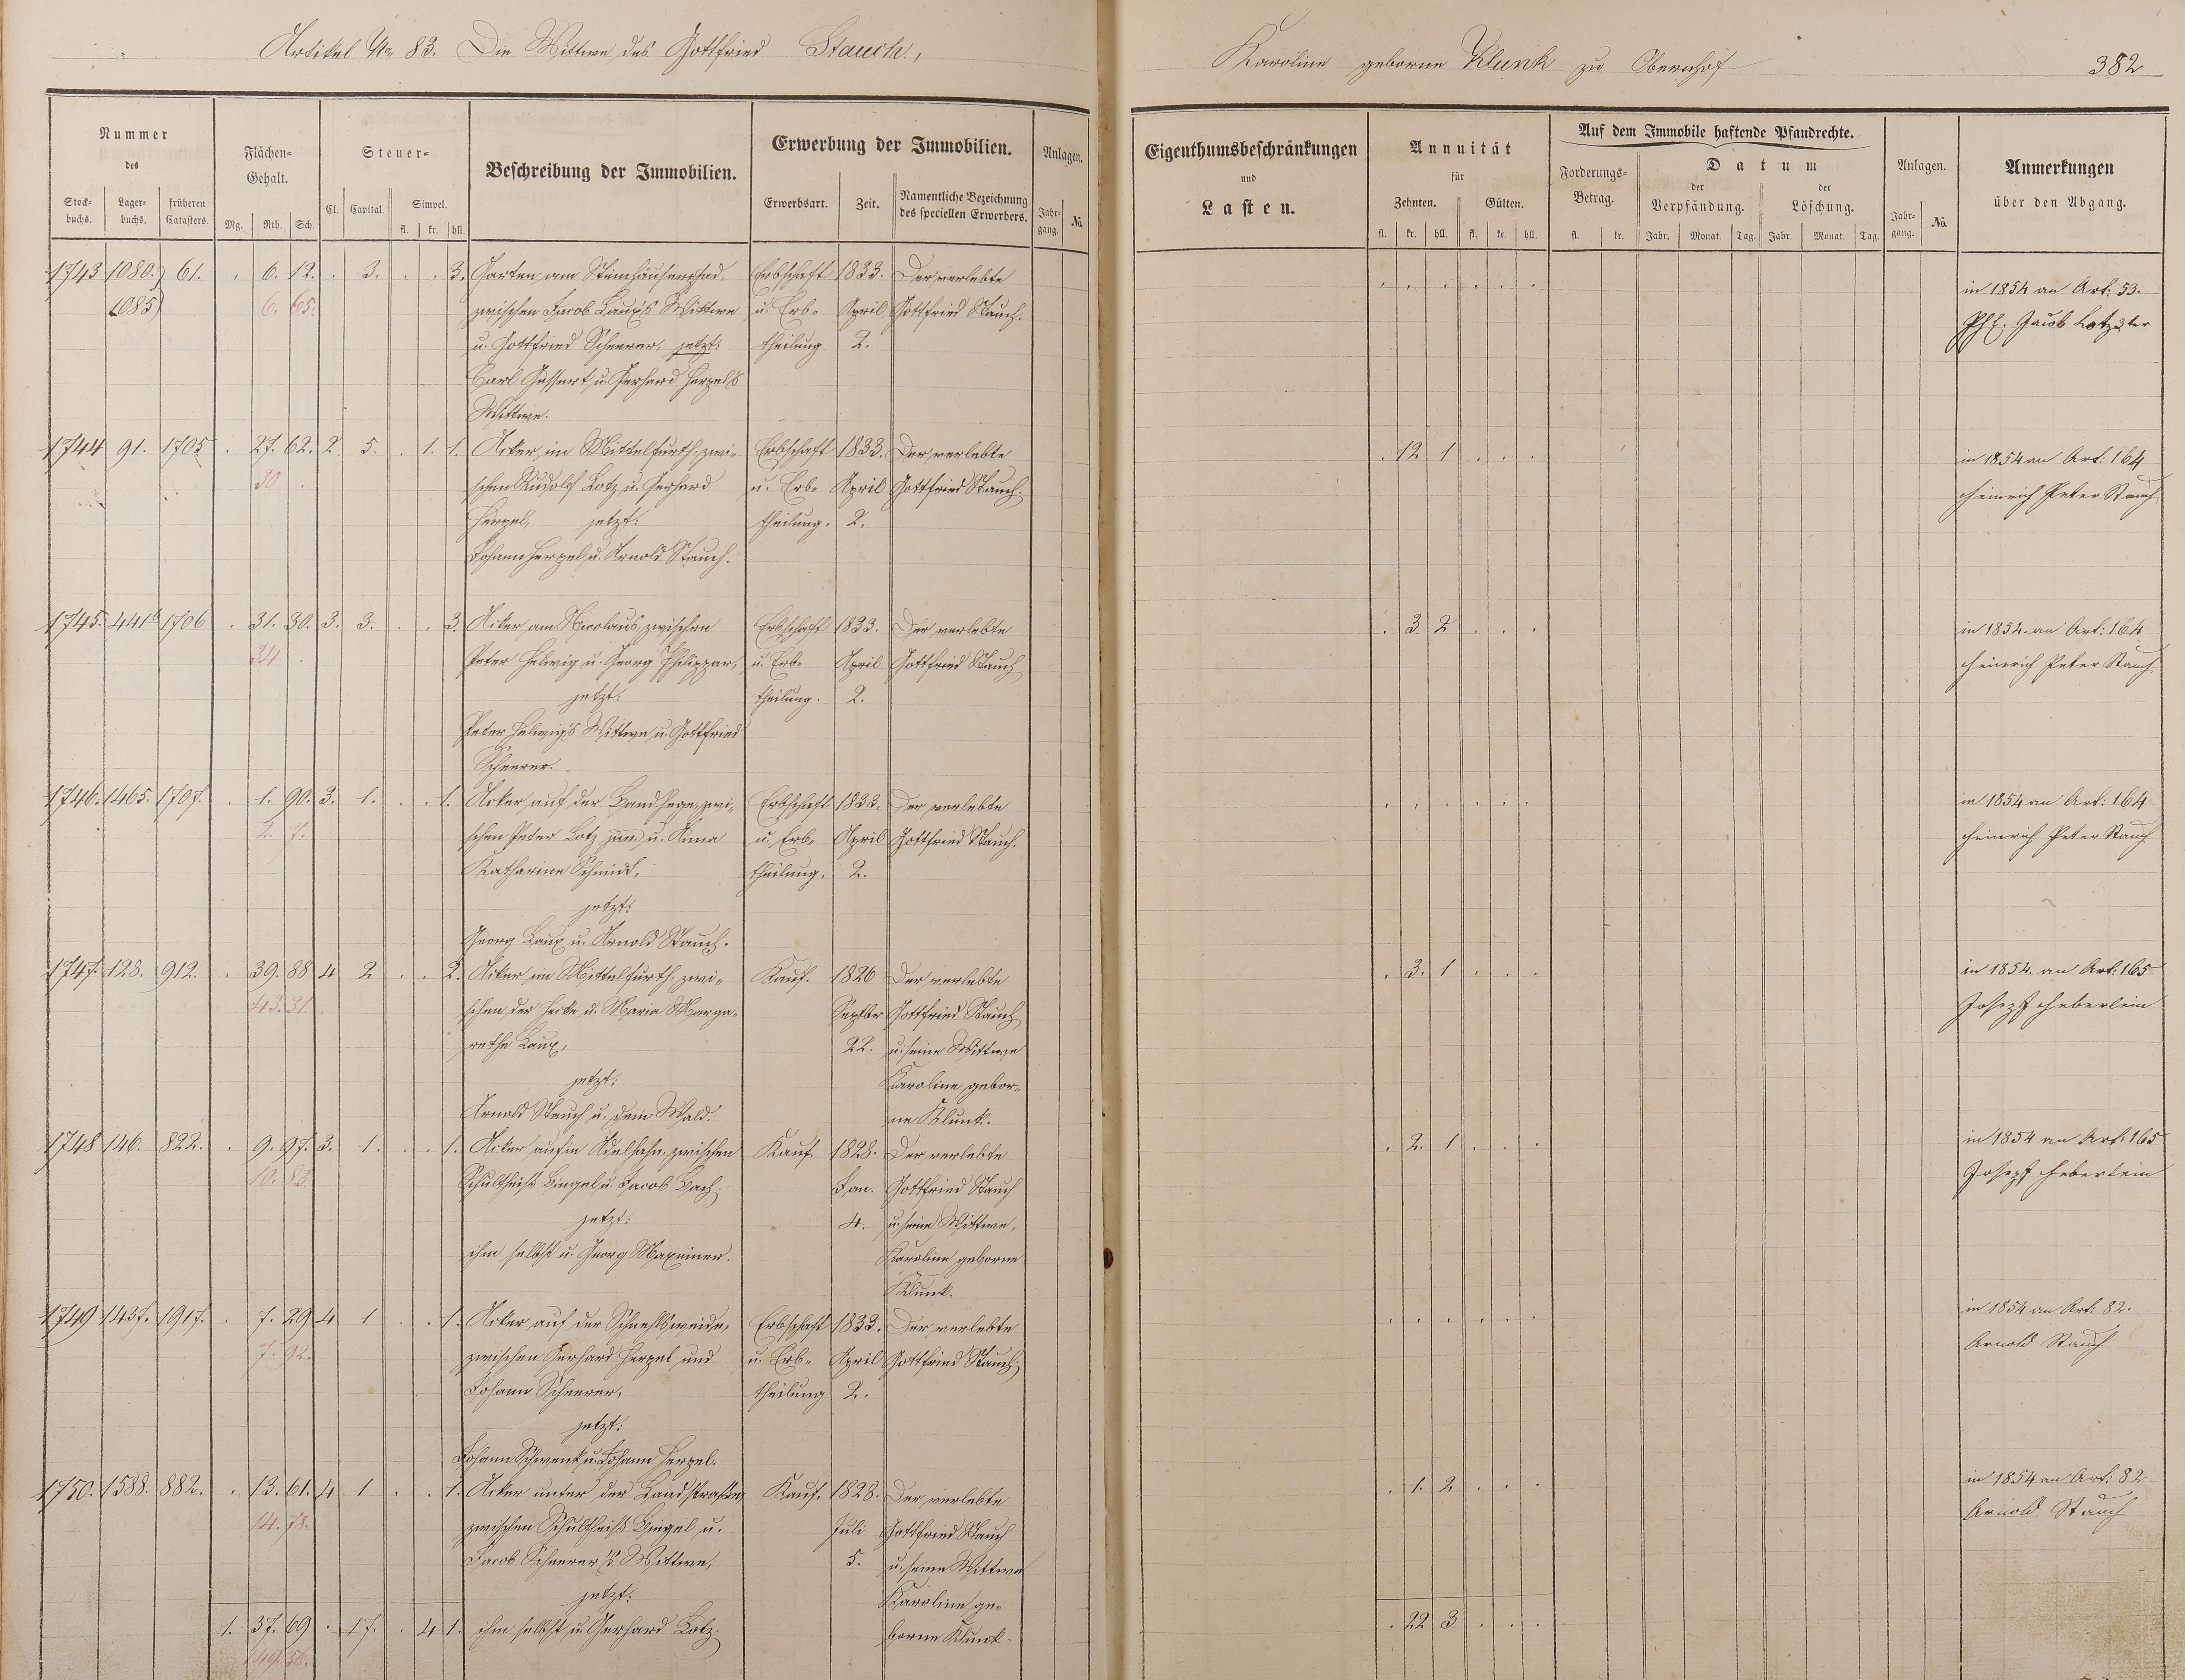 Artikel No 83. Die Wittwe des Gottfried Stauch, Karoline geborne Klunk zu Obernhof
382
Nummer des
Stockbuchs. Lagerbuchs. früheren Catasters.
Flächen-Gehalt.
Mg. Rth. Sch.
Steuer-
Cl. Capital. Simpel.
fl. kr. hll.
Beschreibung der Immobilien.
Erwerbung der Immobilien.
Erwerbsart. Zeit. Namentliche Bezeichnung des speciellen Erwerbers.
Anlagen.
Jahrgang. No
Eigenthumsbeschränkungen und Lasten.
Annuität für
Zehnten. Gülten.
fl. kr. hll. fl. kr. hll.
Auf dem Immobile haftende Pfandrechte.
Forderungs-Betrag.
fl. kr.
Datum
der Verpfändung. der Löschung.
Jahr. Monat. Tag. Jahr. Monat. Tag.
Anlagen.
Jahrgang. No
Anmerkungen über den Abgang.
1743 1080. 61. . 6. 12. . 3. . . 3. Garten am Steinhäuserpfad, Erbschaft 1833. Der verlebte
1085 6. 65. zwischen Jacob Laux's Wittwe u. Erb- April Gottfried Stauch.
u. Gottfried Scheerer, jetzt: theilung 2.
Carl Gessert u. Gerhard Herpel's
Wittwe.
in 1854 an Art: 53.
Phl. Jacob Lotz 3ter
1744 91. 1705 . 27. 62. 2 5. . 1. 1. Acker im Mittelfurth, zwi- Erbschaft 1833. Der verlebte . 12 1 . . .
30 . schen Rudolf Lotz u. Gerhard u. Erb- April Gottfried Stauch.
Herpel, jetzt: theilung. 2.
Johann Herpel u. Arnold Stauch.
in 1854 an Art: 164
Heinrich Peter Stauch
1745. 441b 1706 . 31. 30. 3. 3. . . 3. Acker am Nicolaus, zwischen Erbschaft 1833. Der verlebte . 3 2 . . .
34 . Peter Helwig u. Georg Philippar, u. Erb- April Gottfried Stauch
jetzt: theilung. 2.
Peter Helwig's Wittwe u. Gottfried
Scheerer.
in 1854. an Art: 164
Heinrich Peter Stauch
1746. 1465. 1707. . 1. 90. 3. 1. . . 1. Acker auf der Landhege, zwi- Erbschaft 1833. Der verlebte
2. 7. schen Peter Lotz jun. u. Anna u. Erb- April Gottfried Stauch.
Katharine Schmidt, theilung. 2.
jetzt:
Georg Laux u. Arnold Stauch.
in 1854 an Art: 164
Heinrich Peter Stauch
1747. 128. 912. . 39. 88 4 2 . . 2. Acker im Mittelfurth, zwi- Kauf. 1826 Der verlebte . 3. 1 . . .
43. 31. schen der Hecke u. Maria Marga- Septbr Gottfried Stauch
rethe Laux, 22. u. seine Wittwe
jetzt: Karoline gebor-
Arnold Stauch u. dem Wald. ne Klunk.
in 1854. an Art: 165
Joseph Heberlein
1748 146. 822. . 9. 97. 3. 1. . . 1. Acker aufm zwischen Kauf. 1828. Der verlebte . 2. 1 . . .
10. 83. Schultheiß Bingel u. Jacob Bach. Jan. Gottfried Stauch
jetzt: 4. u. seine Wittwe,
ihm selbst u. Georg Maxeiner. Karoline geborne
Klunk.
in 1854 an Art: 165
Joseph Heberlein
1749 1437. 1917. . 7. 29 4 1 . . 1. Acker auf der zwischen Gerhard Herpel und Erbschaft 1833. Der verlebte
7. 92. Johann Scheerer, u. Erb- April Gottfried Stauch;
theilung 2.
jetzt:
Johann Schwenk u. Johann Herpel.
in 1854 an Art: 82.
Arnold Stauch
1750. 1588. 882. . 13. 61. 4 1 . . 1. Acker unter der Landstraße, Kauf. 1828. Der verlebte . 1. 2 . . .
14. 78. zwischen Schultheiß Bingel u. Juli Gottfried Stauch
Jacob Scheerer's Wittwe, 5. u. seine Wittwe
jetzt: Karoline ge-
ihm selbst u. Gerhard Lotz. borne Klunk.
in 1854 an Art: 82
Arnold Stauch
1. 37. 69 . 17. . 4 1. . 22 3 . . .
49. 56.